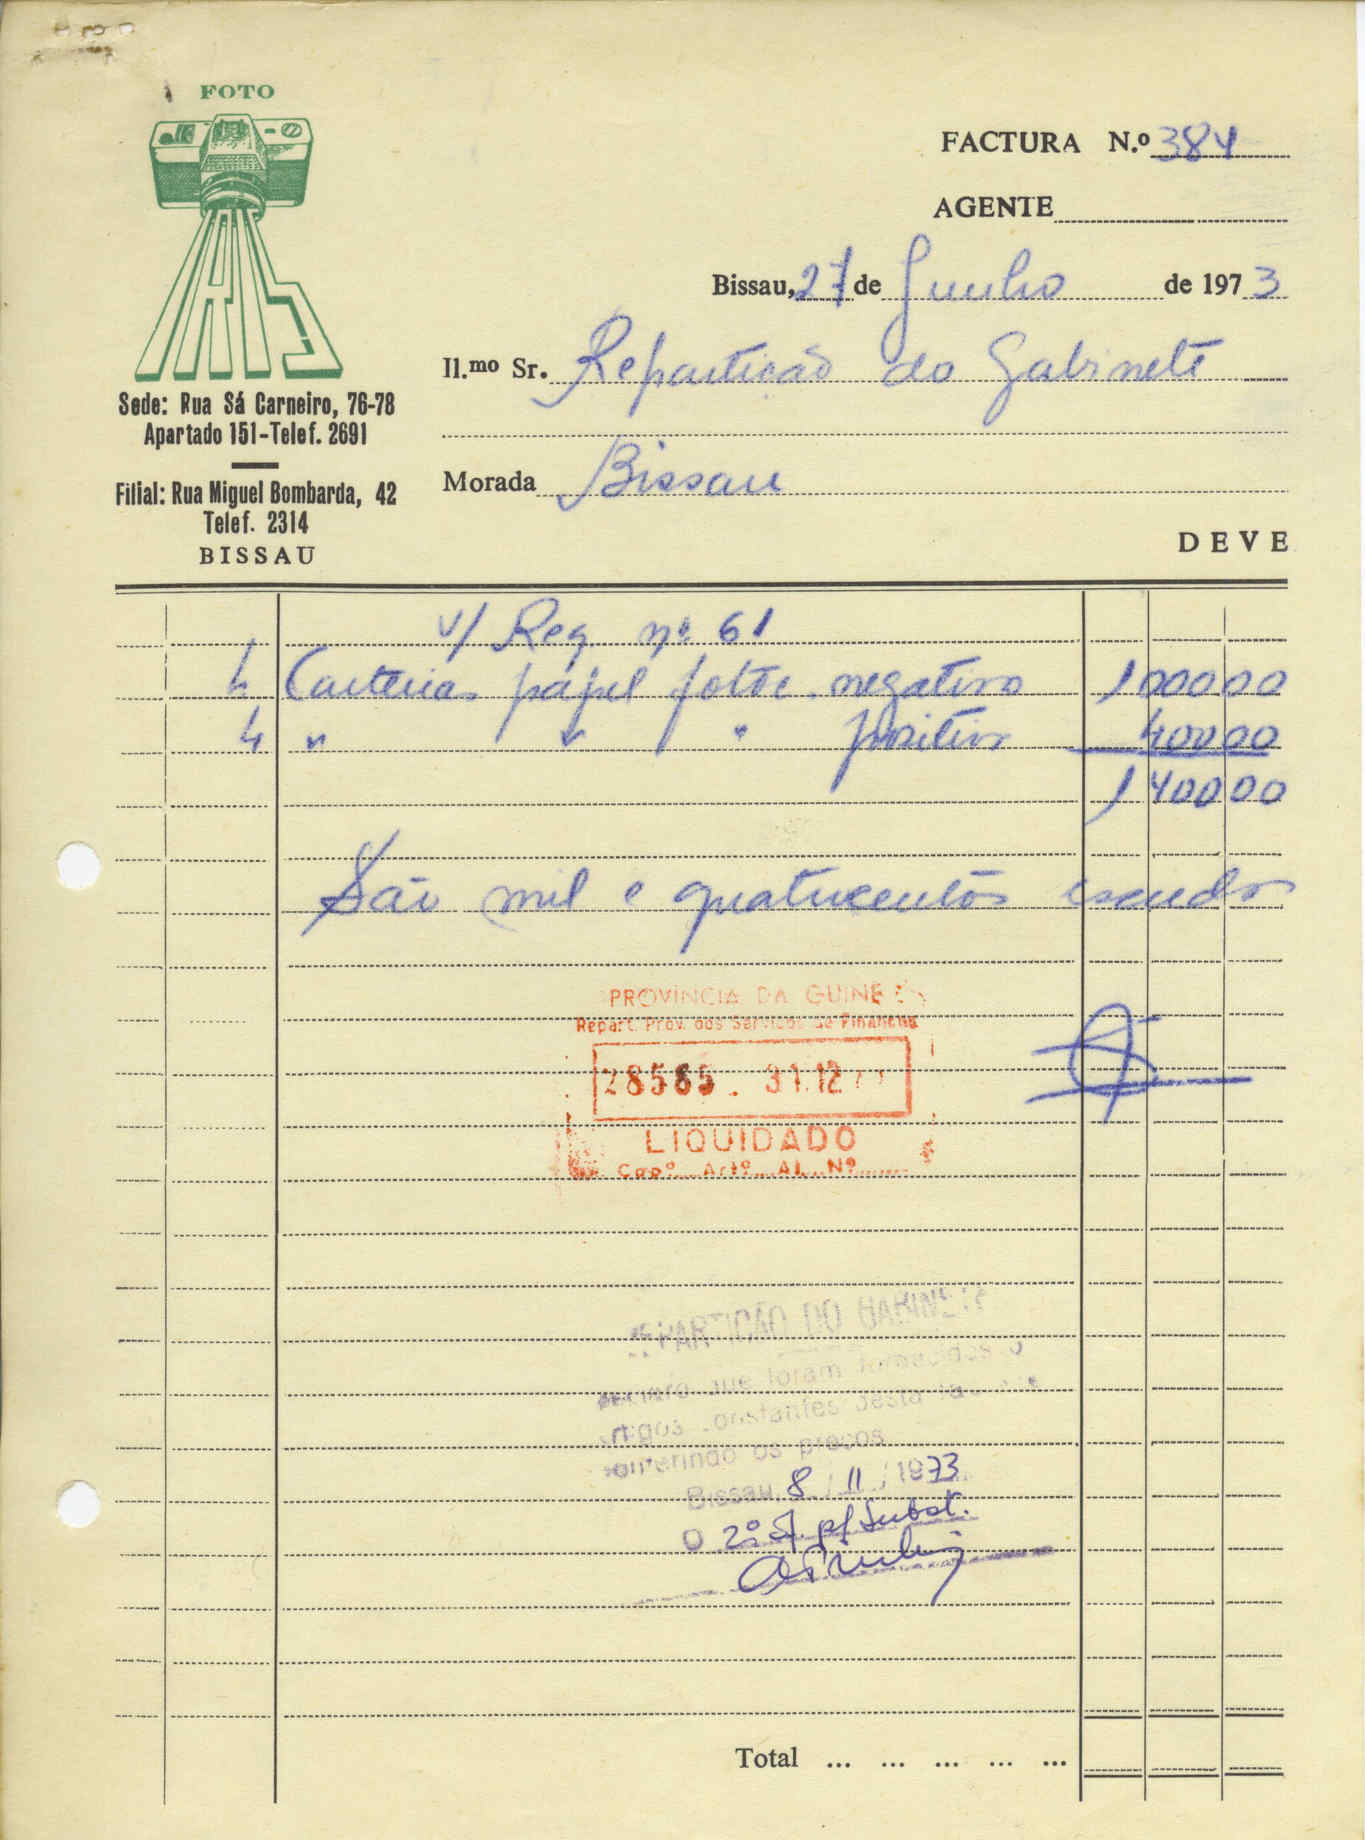 FOTO
IRIS
Sede: Rua Sá Carneiro, 76-78
Apartado 151-Telef. 2691
Filial: Rua Miguel Bombarda, 42
Telef. 2314
BISSAU
FACTURA N.º 384
AGENTE
Bissau, 27 de Junho de 1973
Il.mo Sr. Repartição do Gabinete
Morada Bissau
DEVE
v/ Req. nº 61
4 Carteiras papel fotoc. negativo 1 000 00
4 " " " positivo 400 00
1 400 00
São mil e quatrocentos escudos
PROVÍNCIA DA GUINÉ
Repart. Prov. dos Serviços de Finanças
28565 . 31.12
LIQUIDADO
Capº Artº Al. Nº
REPARTIÇÃO DO GABINETE
que foram fornecidos o
artigos constantes desta
conferindo os preços
Bissau, 8 / 11 / 1973
O 2º
Subst.
Total ... ... ... ... ...